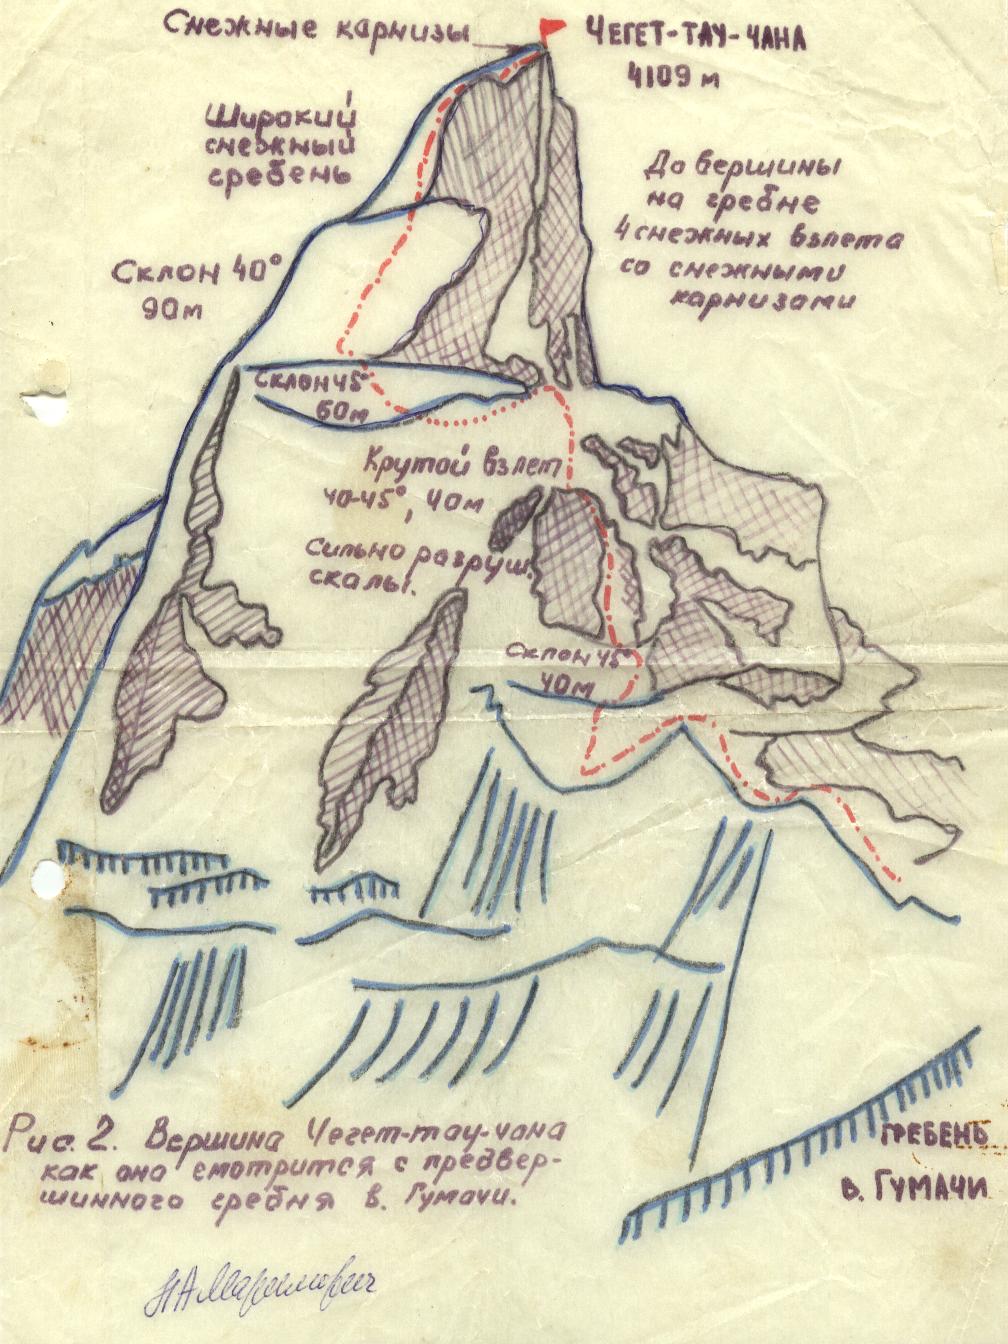 Снежные карнизы
ЧЕГЕТ-ТАУ-ЧАНА
4109 м
Широкий
снежный
гребень
До вершины
на гребне
4 снежных взлета
со снежными
карнизами
Склон 40°
90м
Склон 45°
60м
Крутой взлет
40-45°, 40м
Сильно разруш.
скалы.
Склон 45°
40м
Рис. 2. Вершина Чегет-тау-чана
как она смотрится с предвер-
шинного гребня в. Гумачи.
ГРЕБЕНЬ
в. ГУМАЧИ